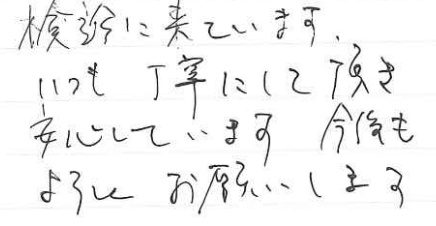 検診に来ています。
いつも 丁寧にして頂き
安心しています 今後も
よろしく お願いします